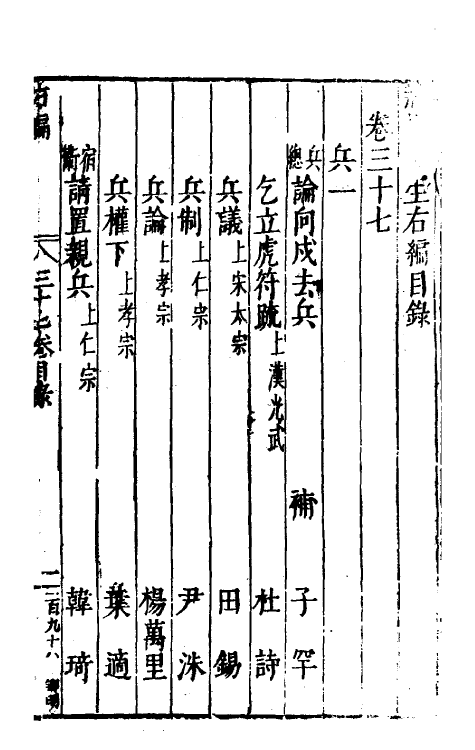 右編目錄
卷三十七
兵一
兵總 論向戌去兵 補 子罕
乞立虎符疏 上漢光武 杜詩
兵議 上宋太宗 田錫
兵制 上仁宗 尹洙
兵論 上孝宗 楊萬里
兵權下 上孝宗 葉適
宿衛 請置親兵 上仁宗 韓琦
右編 三十七卷目錄 二百九十八